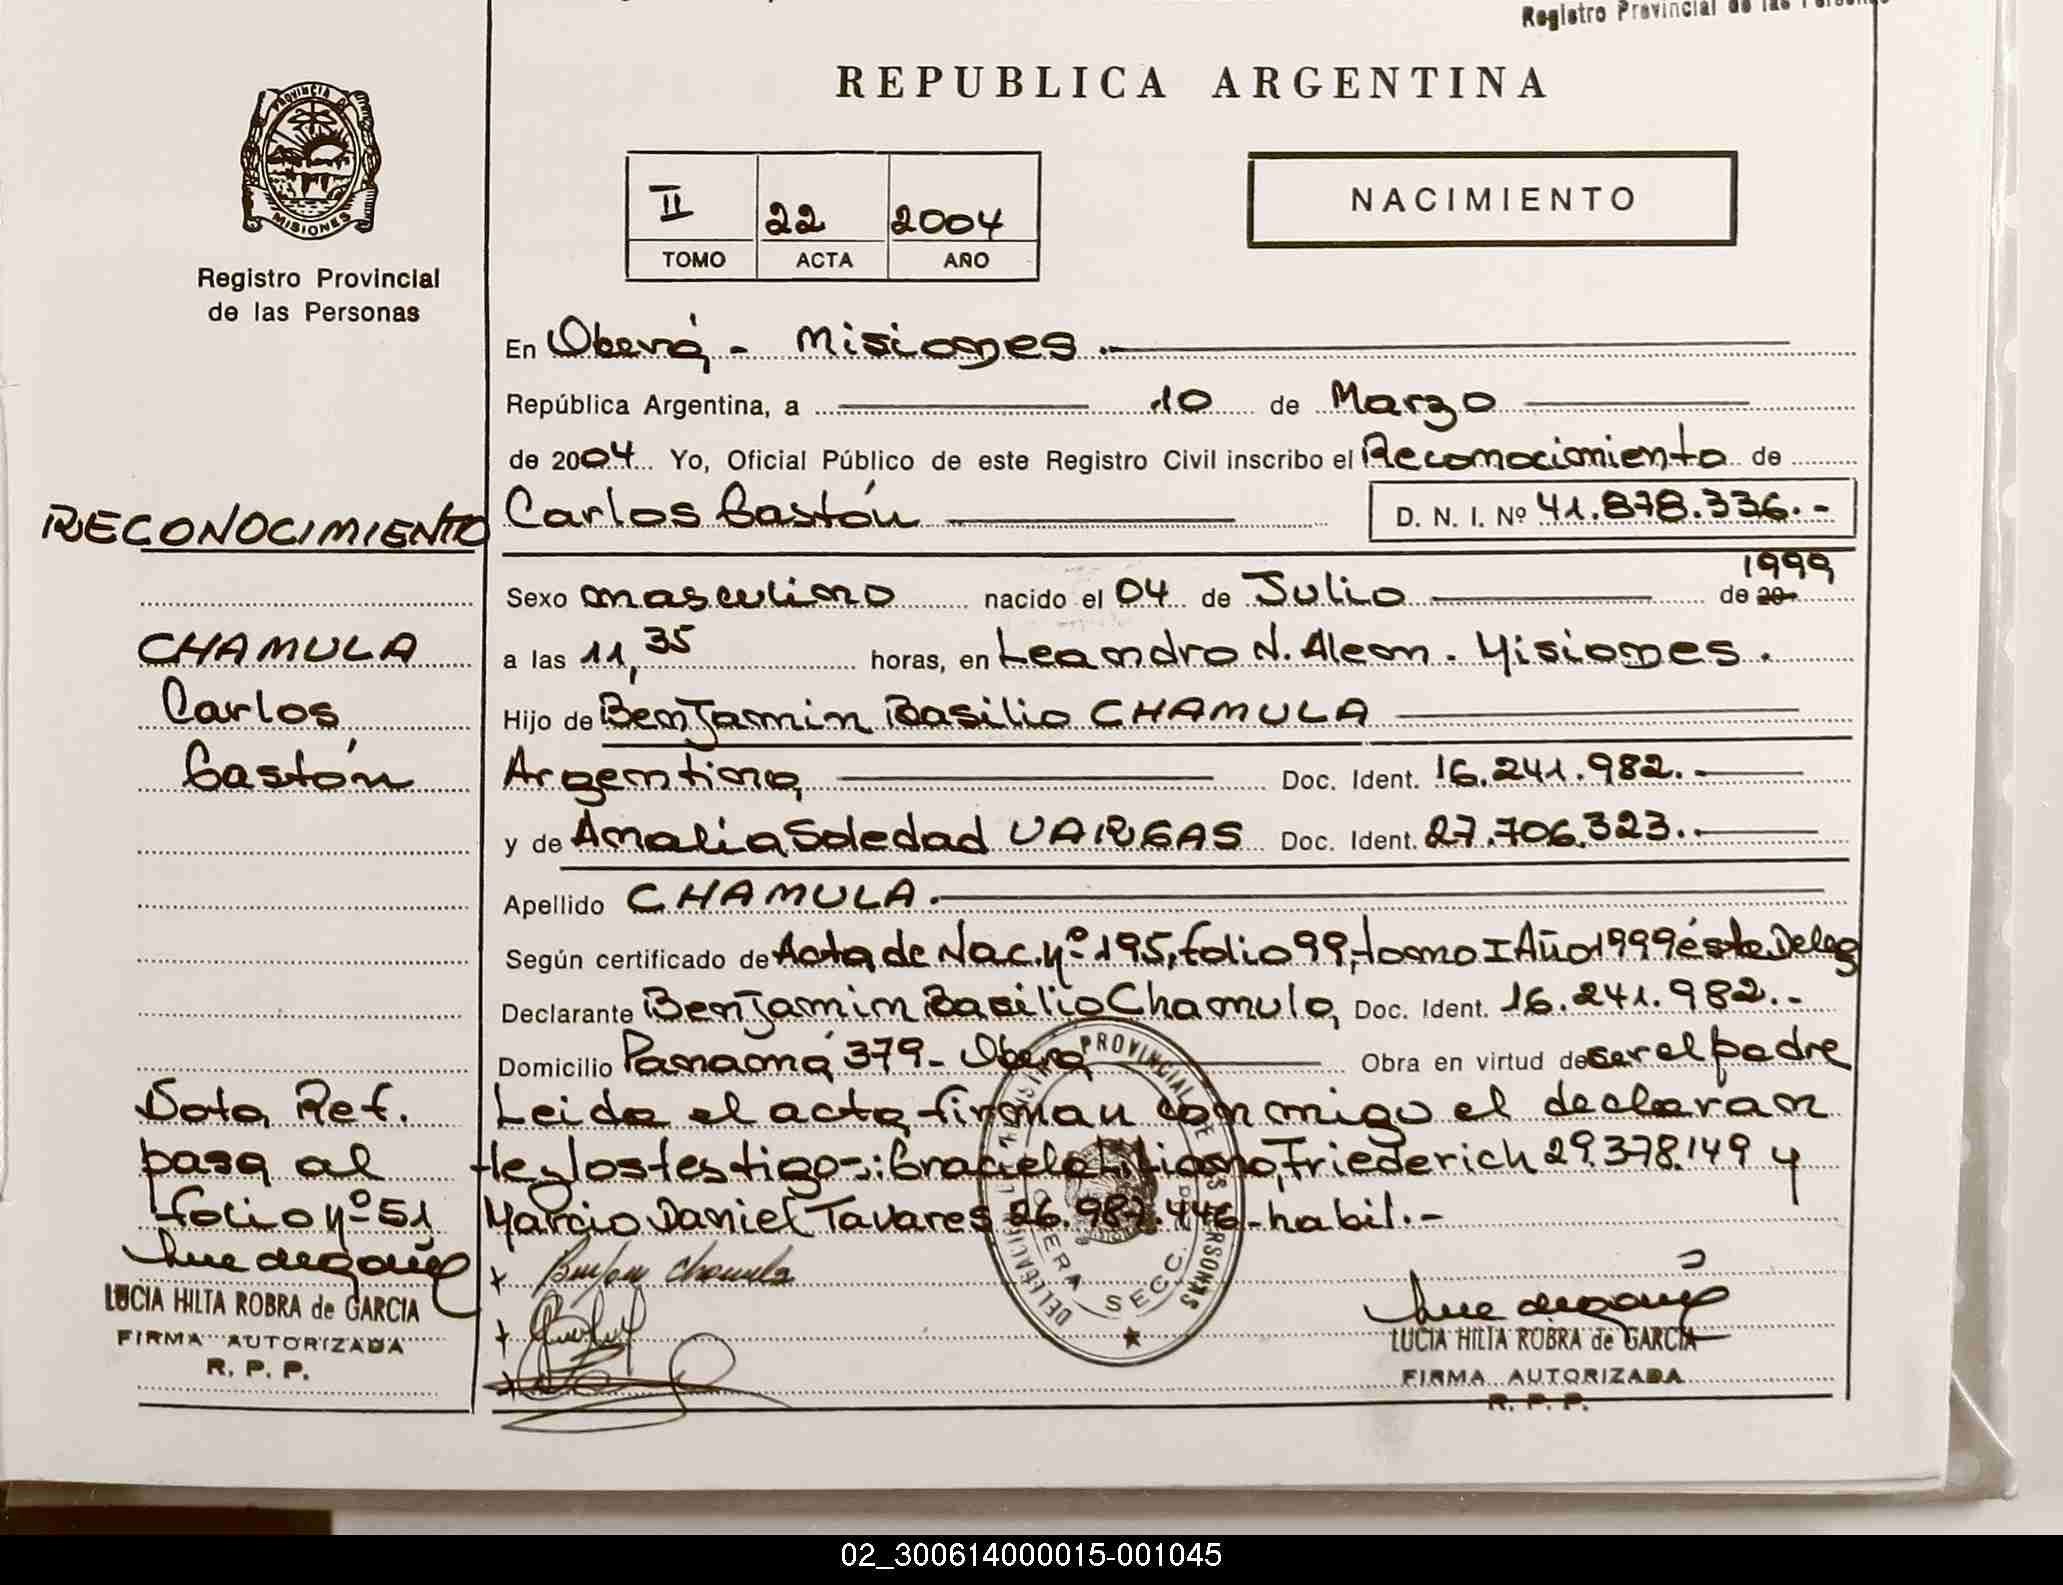 Registro Provincial de las Personas
REPUBLICA ARGENTINA
PROVINCIA DE
MISIONES
Registro Provincial
de las Personas
II 22 2004
TOMO ACTA AÑO
NACIMIENTO
En Oberá - Misiones.
República Argentina, a 10 de Marzo
de 2004 Yo, Oficial Público de este Registro Civil inscribo el Reconocimiento de
RECONOCIMIENTO
Carlos Gastón D. N. I. Nº 41.878.336.-
1999
Sexo masculino nacido el 04 de Julio de 20
CHAMULA
a las 11,35 horas, en Leandro N. Alem. Misiones.
Carlos
Hijo de Benjamin Basilio CHAMULA
Gastón
Argentina Doc. Ident. 16.241.982.
y de Amalia Soledad VARGAS Doc. Ident. 27.706.323.
Apellido CHAMULA.
Según certificado de Acta de Nac. nº 195, folio 99, tomo I Año 1999 éste Deleg
Declarante Benjamin Basilio Chamula Doc. Ident. 16.241.982.-
Domicilio Panamá 379 - Oberá Obra en virtud de ser el padre
Nota Ref.
pasa al
folio nº 51
Leida el acta, firman conmigo el declaran
te y los testigos: Graciela Liliana Friederich 29.378.149 y
Marcio Daniel Tavares 26.987.446 - habil.-
Chamula
LUCIA HILTA ROBRA de GARCIA
FIRMA AUTORIZADA
R. P. P.
LUCIA HILTA ROBRA de GARCIA
FIRMA AUTORIZADA
R. P. P.
02_300614000015-001045